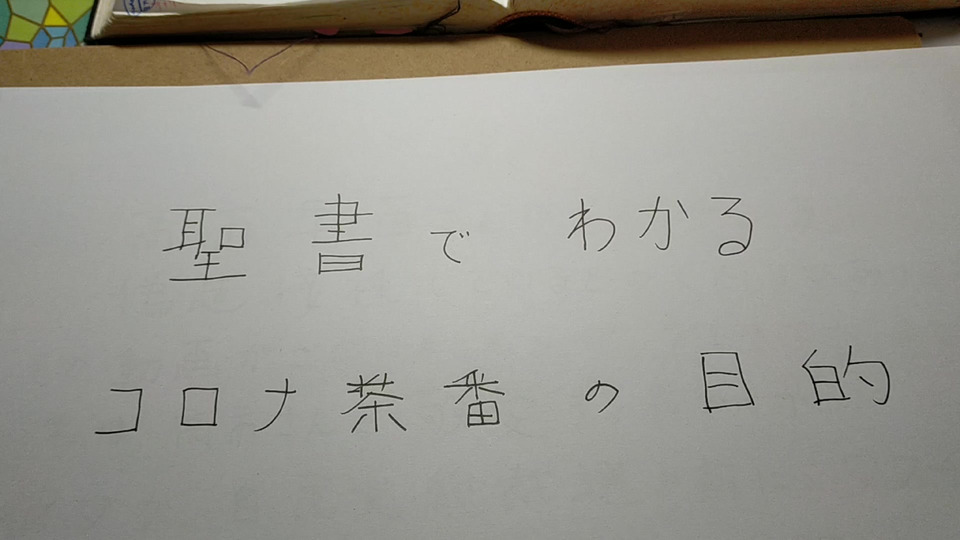 聖書で わかる
コロナ茶番の目的